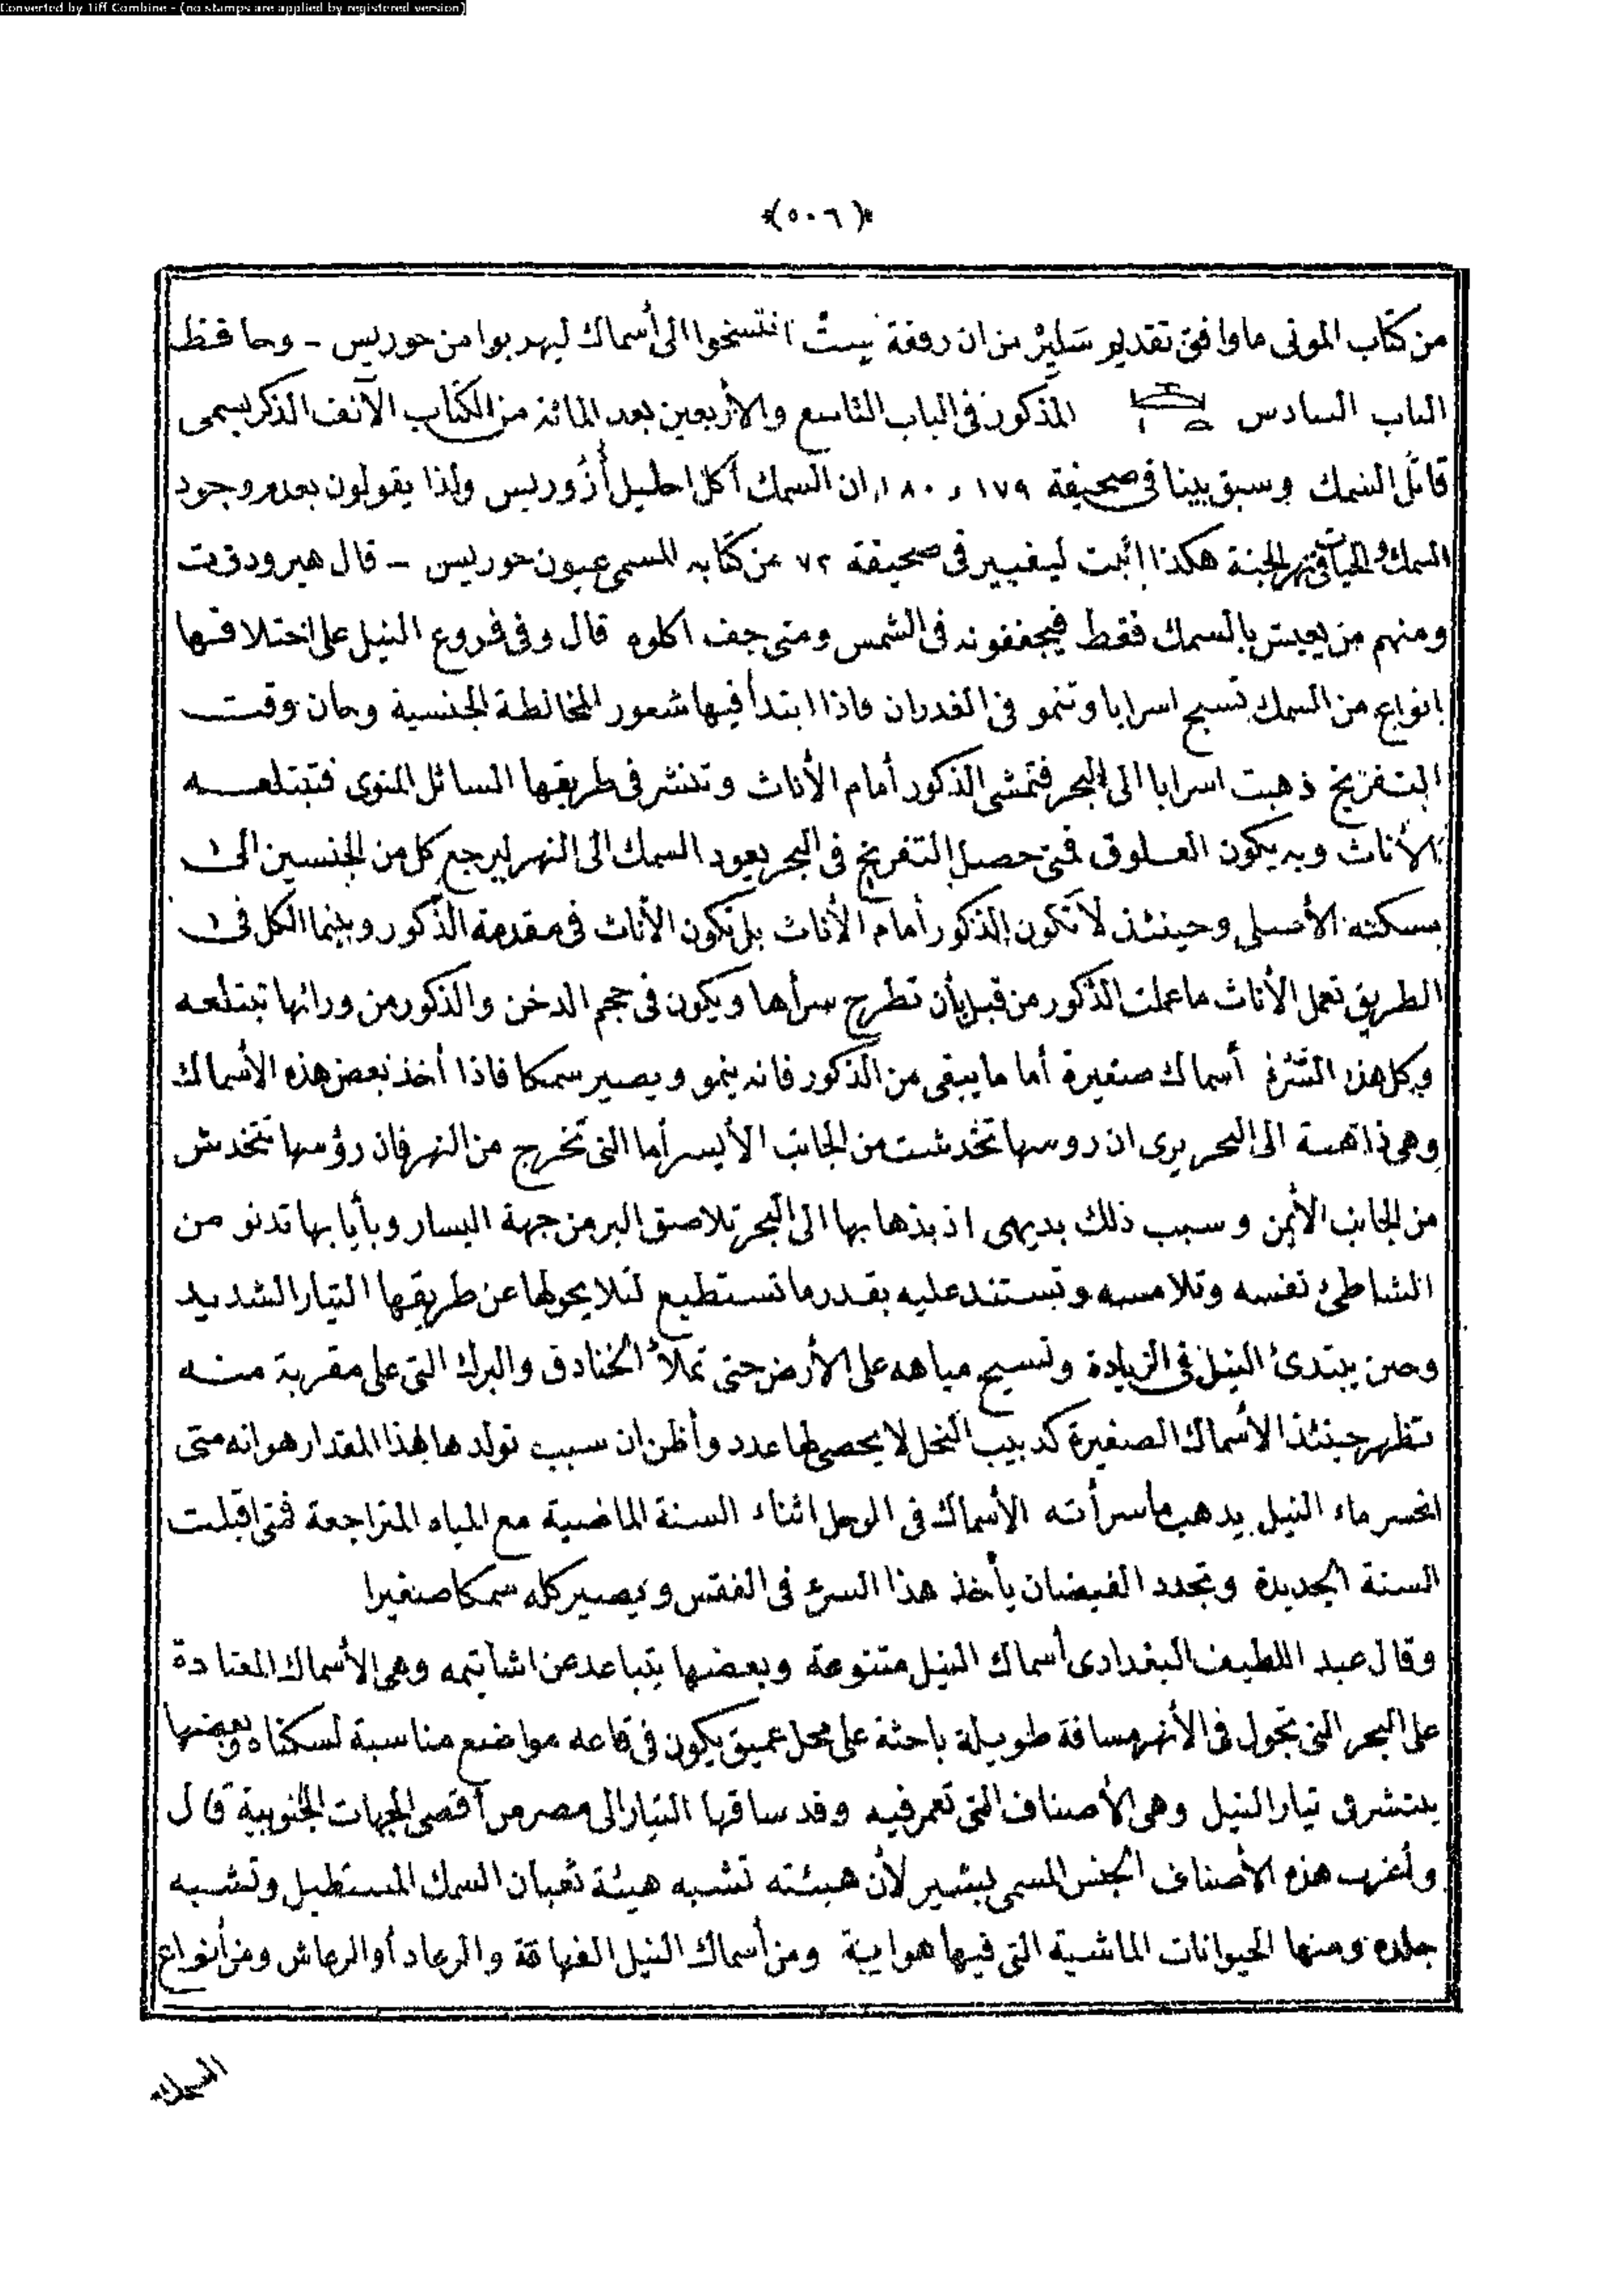 Converted by Tiff Combine - (no stamps are applied by registered version)
(٥٠٦)
من كتاب الموتى ما وافق تقديم سَلِير من ان رفقة سِتْ انتسخوا الى أسماك ليهربوا من حوريس - وحافظ
الباب السادس المذكور فى الباب التاسع والأربعين بعد المائة من الكتاب الآنف الذكر يسمى
قاتل السمك وسبق بينا فى صحيفة ١٧٩ و ١٨٠ ان السمك أكل احليل أزوريس ولذا يقولون بعدم وجود
السمك والحيات فى نهر الجنة هكذا اثبت ليفيير فى صحيفة ٧٢ من كتابه المسمى عيون حوريس - قال هيرودوت
ومنهم من يعيش بالسمك فقط فيجففونه فى الشمس ومتى جف اكلوه قال وفى فروع النيل على اختلافها
انواع من السمك تسبح اسرابا وتنمو فى الغدران فاذا ابتدأ فيها شعور المخالطة الجنسية وحان وقت
التفريخ ذهبت اسرابا الى البحر فتمشى الذكور أمام الأناث وتنشر فى طريقها السائل المنوى فتبتلعه
الأناث وبه يكون العلوق فمتى حصل التفريخ فى البحر يعود السمك الى النهر ليرجع كل من الجنسين الى
مسكنه الأصلى وحينئذ لا تكون الذكور أمام الأناث بل تكون الأناث فى مقدمة الذكور وبينما الكل فى
الطريق تعمل الأناث ما عملت الذكور من قبل بأن تطرح سرأها ويكون فى حجم الدخن والذكور من ورائها تبتلعه
وكل هذه أسماك صغيرة أما ما يبقى من الذكور فانه ينمو ويصير سمكا فاذا أخذ بعض هذه الأسماك
وهى ذاهبة الى البحر يرى ان روسها تخدشت من الجانب الأيسر أما التى تخرج من النهر فان رؤسها تتخدش
من الجانب الأيمن وسبب ذلك بديهى اذ بذهابها الى البحر تلاصق البر من جهة اليسار وبأيابها تدنو من
الشاطئ نفسه وتلامسه وتستند عليه بقدر ما تستطيع لئلا يحولها عن طريقها التيار الشديد
وحين يبتدئ النيل فى الزيادة وتسيح مياهه على الأرض حتى تملأ الخنادق والبرك التى على مقربة منه
تظهر حينئذ الأسماك الصغيرة كدبيب النحل لا يحصى لها عدد وأظن ان سبب تولدها بهذا المقدار هو انه متى
انحسر ماء النيل يذهب ما سرأته الأسماك فى الوحل اثناء السنة الماضية مع المياه المتراجعة فمتى اقبلت
السنة الجديدة وتجدد الفيضان يأخذ هذا السرء فى الفقس ويصير كله سمكا صغيرا
وقال عبد اللطيف البغدادى أسماك النيل متنوعة وبعضها يتباعد عن وهى الأسماك المعتادة
على البحر التى تجول فى الأنهر مسافة طويلة باحثة على محل عميق يكون فى قاعه مواضع مناسبة لسكناه وبعضها
ينتشر فى تيار النيل وهى الأصناف التى تعمر فيه وقد ساقها التيار الى مصر من أقصى الجهات الجنوبية قال
وأغرب هذه الأصناف الجنس المسمى ببشير لأن هيئته تشبه هيئة ثعبان السمك المستطيل وتشبه
جلده ومنها الحيوانات الماشية التى فيها هوايية ومن أسماك النيل الفهاقة والرعاد أو الرعاش ومن أنواع
السمك